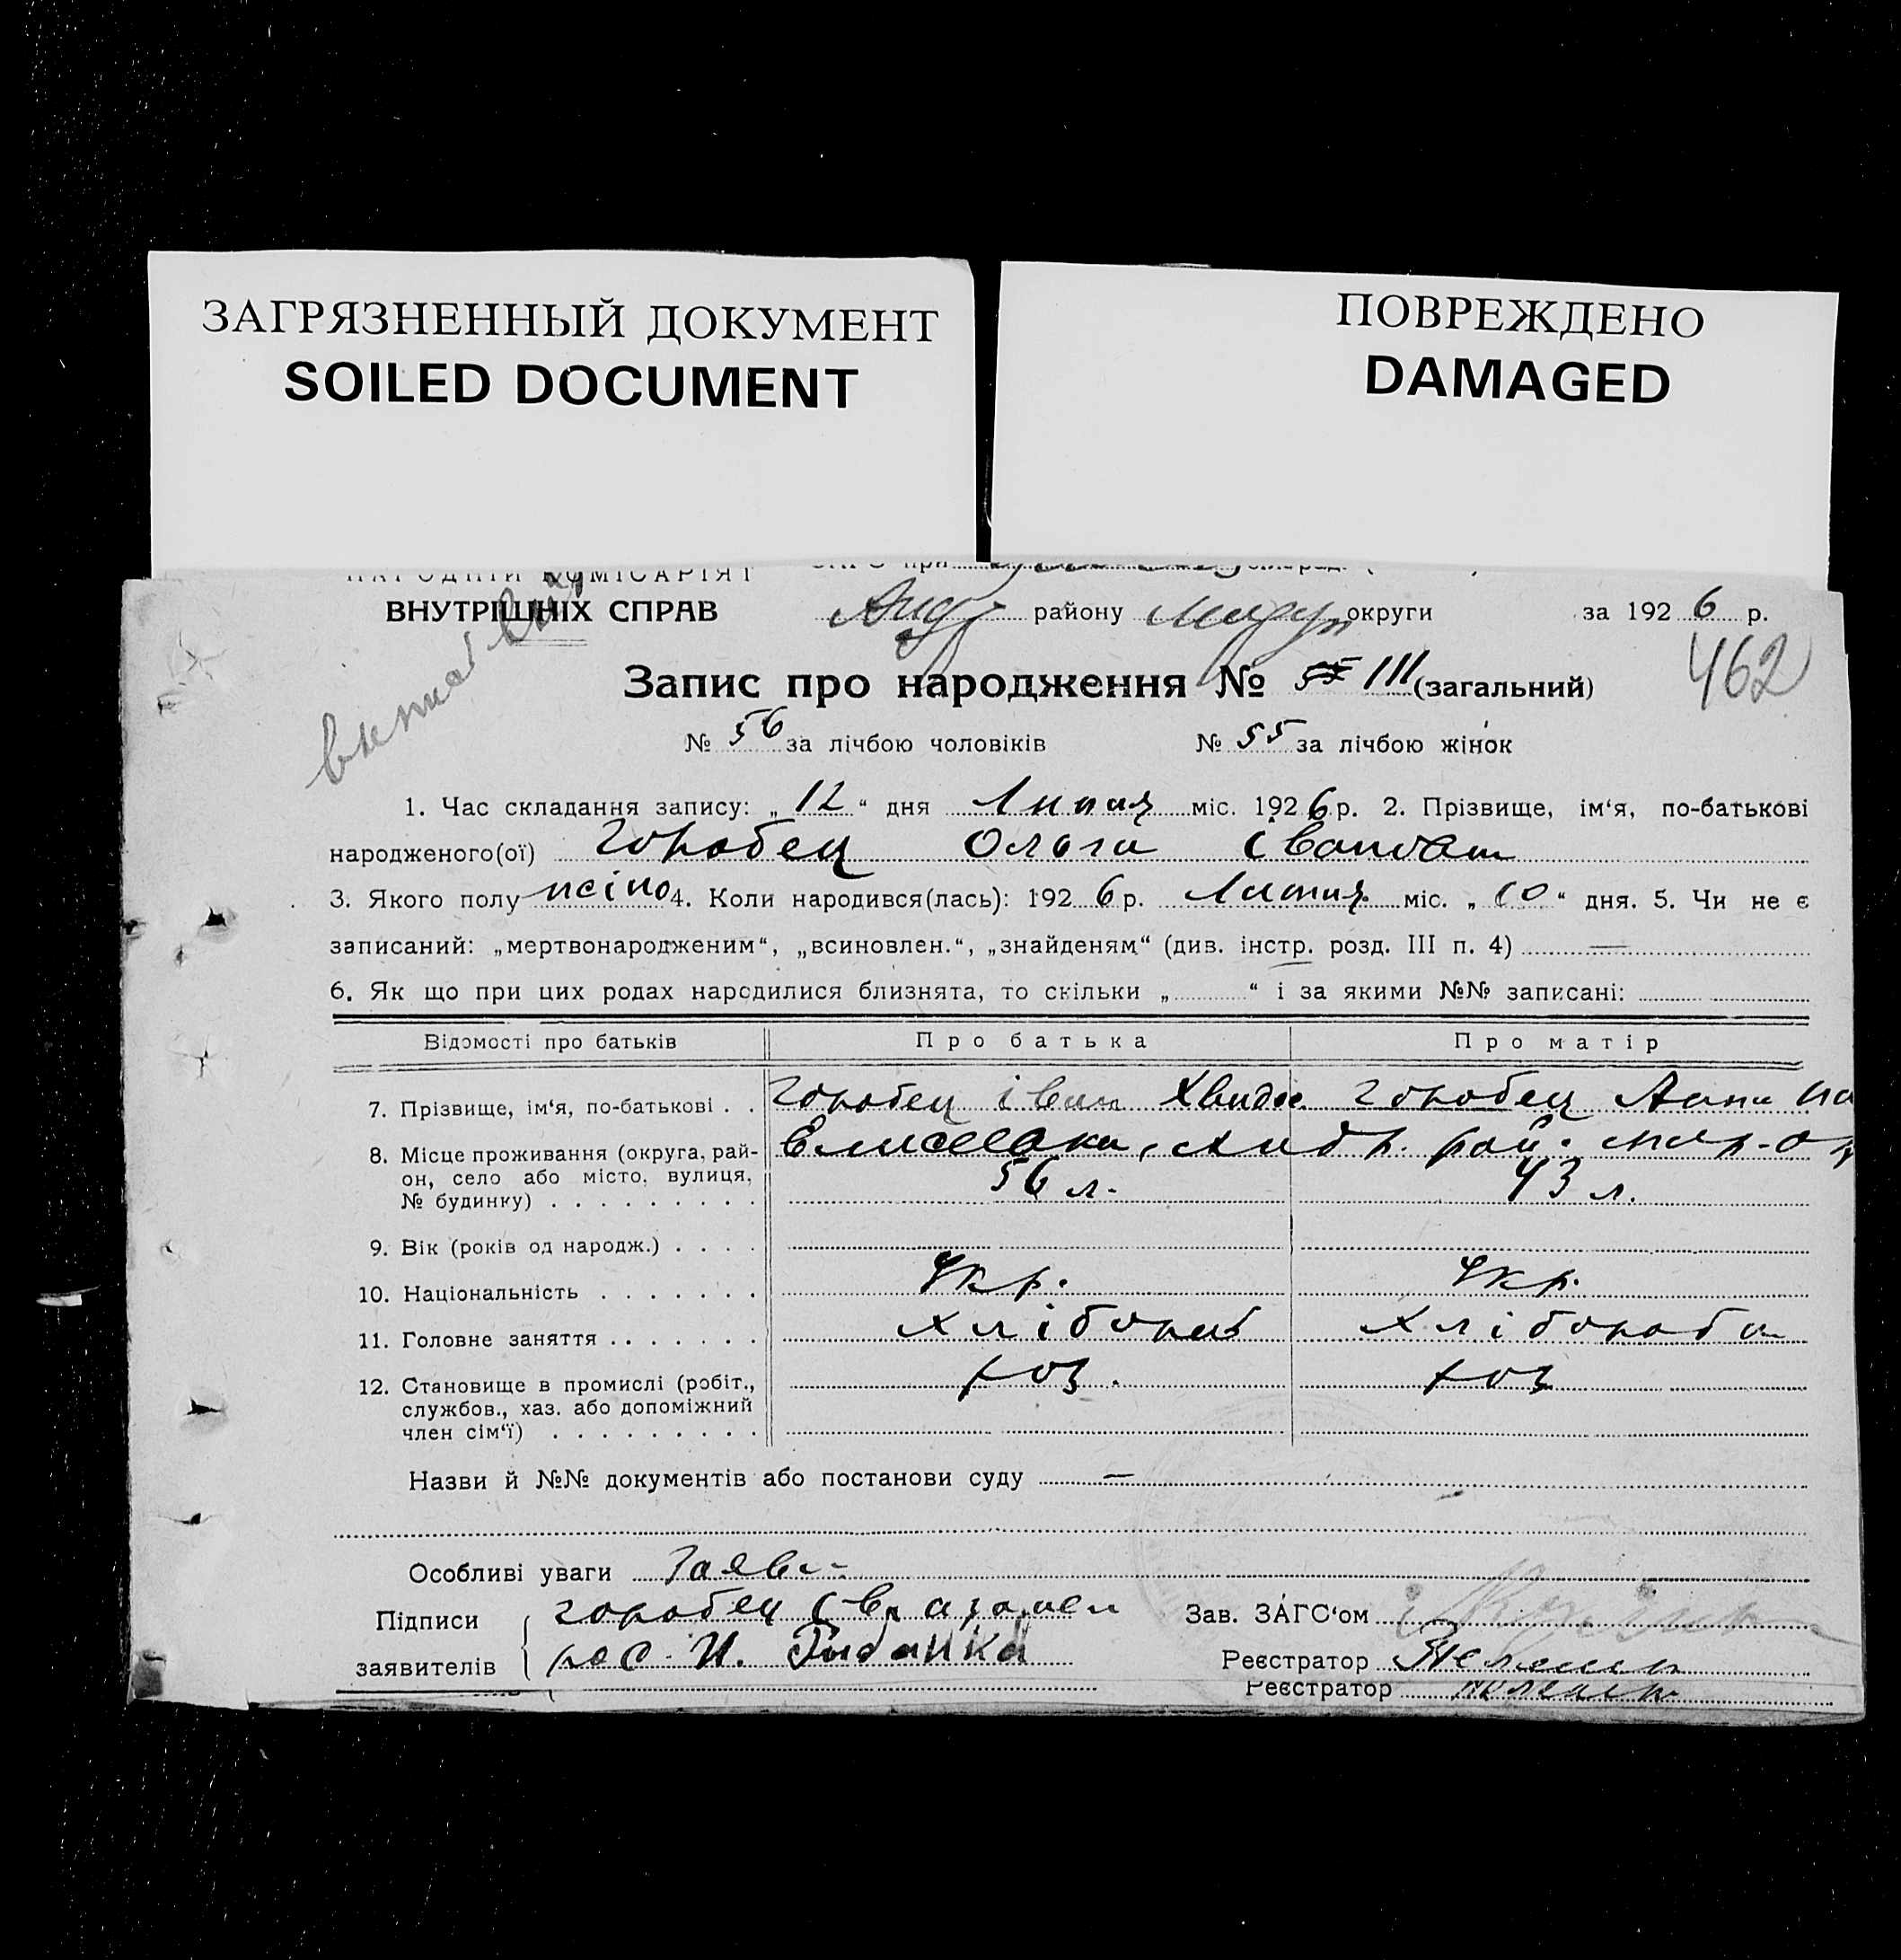 ЗАГРЯЗНЕННЫЙ ДОКУМЕНТ
SOILED DOCUMENT
ПОВРЕЖДЕНО
DAMAGED
НАРОДНІЙ КОМІСАРІЯТ
ВНУТРІШНІХ СПРАВ
району округи за 1926 р.
Запис про народження № 55 111 (загальний) 462
№ 56 за лічбою чоловіків № 55 за лічбою жінок
1. Час складання запису: „12“ дня Липця міс. 1926 р. 2. Прізвище, ім‘я, по-батькові
народженого(ої) Горобец Ольга
3. Якого полу жіно 4. Коли народився(лась): 1926 р. Липця міс. „10“ дня. 5. Чи не є
записаний: „мертвонародженим“, „всиновлен.“, „знайденям“ (див. інстр. розд. III п. 4) —
6. Як що при цих родах народилися близнята, то скільки „ “ і за якими №№ записані:
Відомості про батьків Про батька Про матір
7. Прізвище, ім‘я, по-батькові . . Горобец іван Горобец Анна
8. Місце проживання (округа, рай-
он, село або місто, вулиця, 56 л. 43 л.
№ будинку)
9. Вік (років од народж.)
10. Національність Укр. Укр.
11. Головне заняття Хлібороб Хлібороба
12. Становище в промислі (робіт., хоз. хоз
службов., хаз. або допоміжний
член сім‘ї)
Назви й №№ документів або постанови суду —
Особливі уваги
Підписи Горобец Зав. ЗАГС‘ом
заявителів И. Реєстратор
Реєстратор